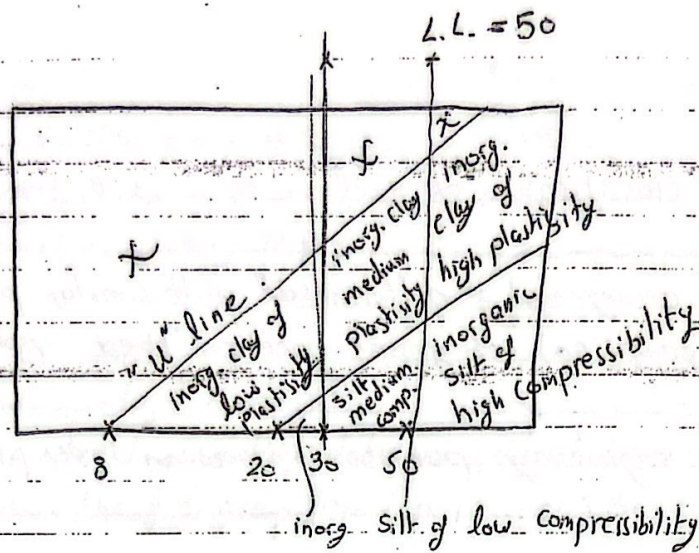 L.L. = 50
x
x
x
"U" line
inorg. clay of
low
plasticity
inorg. clay
medium
plasticity
inorg.
clay of
high plasticity
silt
medium
comp.
inorganic
silt of
high compressibility
8
20
30
50
inorg silt of low compressibility